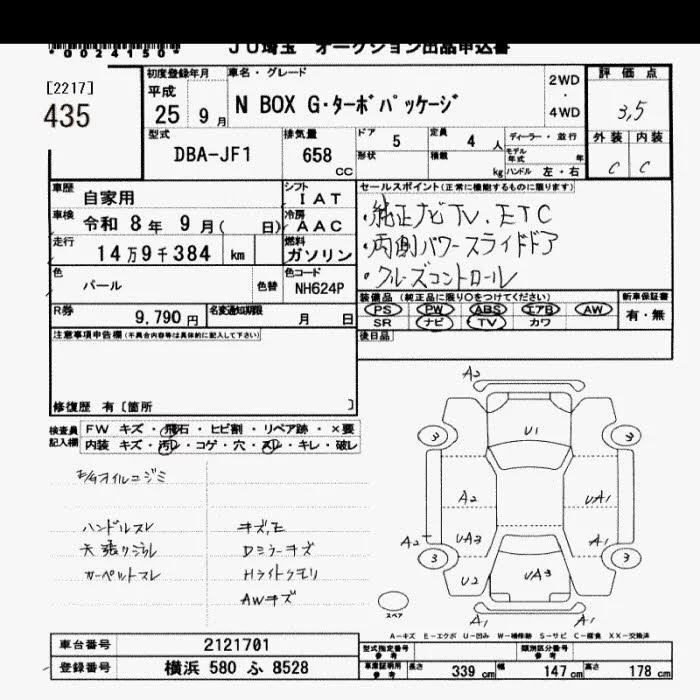 *0024150*
JU埼玉 オークション出品申込書
[2217]
435
初度登録年月
平成
25 9月
車名・グレード
N BOX G・ターボパッケージ
2WD
・
4WD
評価点
3,5
外装 内装
C C
型式
DBA-JF1
排気量
658 CC
ドア 5
形状
定員 4 人
積載 kg
ディーラー・並行
モデル年式 年
ハンドル 左・右
車歴 自家用
車検 令和 8年 9月( 日)
走行 14万9千384 km
色 パール
色替
シフト IAT
冷房 AAC
燃料 ガソリン
色コード NH624P
R券 9,790円
名変通知期限 月 日
セールスポイント(正常に機能するものに限ります)
・純正ナビTV.ETC
・両側パワースライドドア
・クルーズコントロール
装備品(純正品に限り○をつけてください)
PS PW ABS エアB AW
SR ナビ TV カワ
新車保証書
有・無
後日品
注意事項申告欄(不具合内容等は具体的に記入して下さい)
修復歴 有〔箇所 〕
検査員記入欄
FW キズ・飛石・ヒビ割・リペア跡・×要
内装 キズ・汚レ・コゲ・穴・スレ・キレ・破レ
オイルニジミ
ハンドルスレ
天張リ
カーペットスレ
Dミラーキズ
Hライトクモリ
AWキズ
A2
3
3
U1
A2
UA1
A2
UA3
A1
3
3
U2
UA3
A1
A1
スペア
A-キズ E-エクボ U-凹み W-補修跡 S-サビ C-腐食 XX-交換済
車台番号 2121701
登録番号 横浜 580 ふ 8528
型式指定番号 参考
類別区分番号 参考
車庫証明用 参考
長さ 339 cm
幅 147 cm
高さ 178 cm